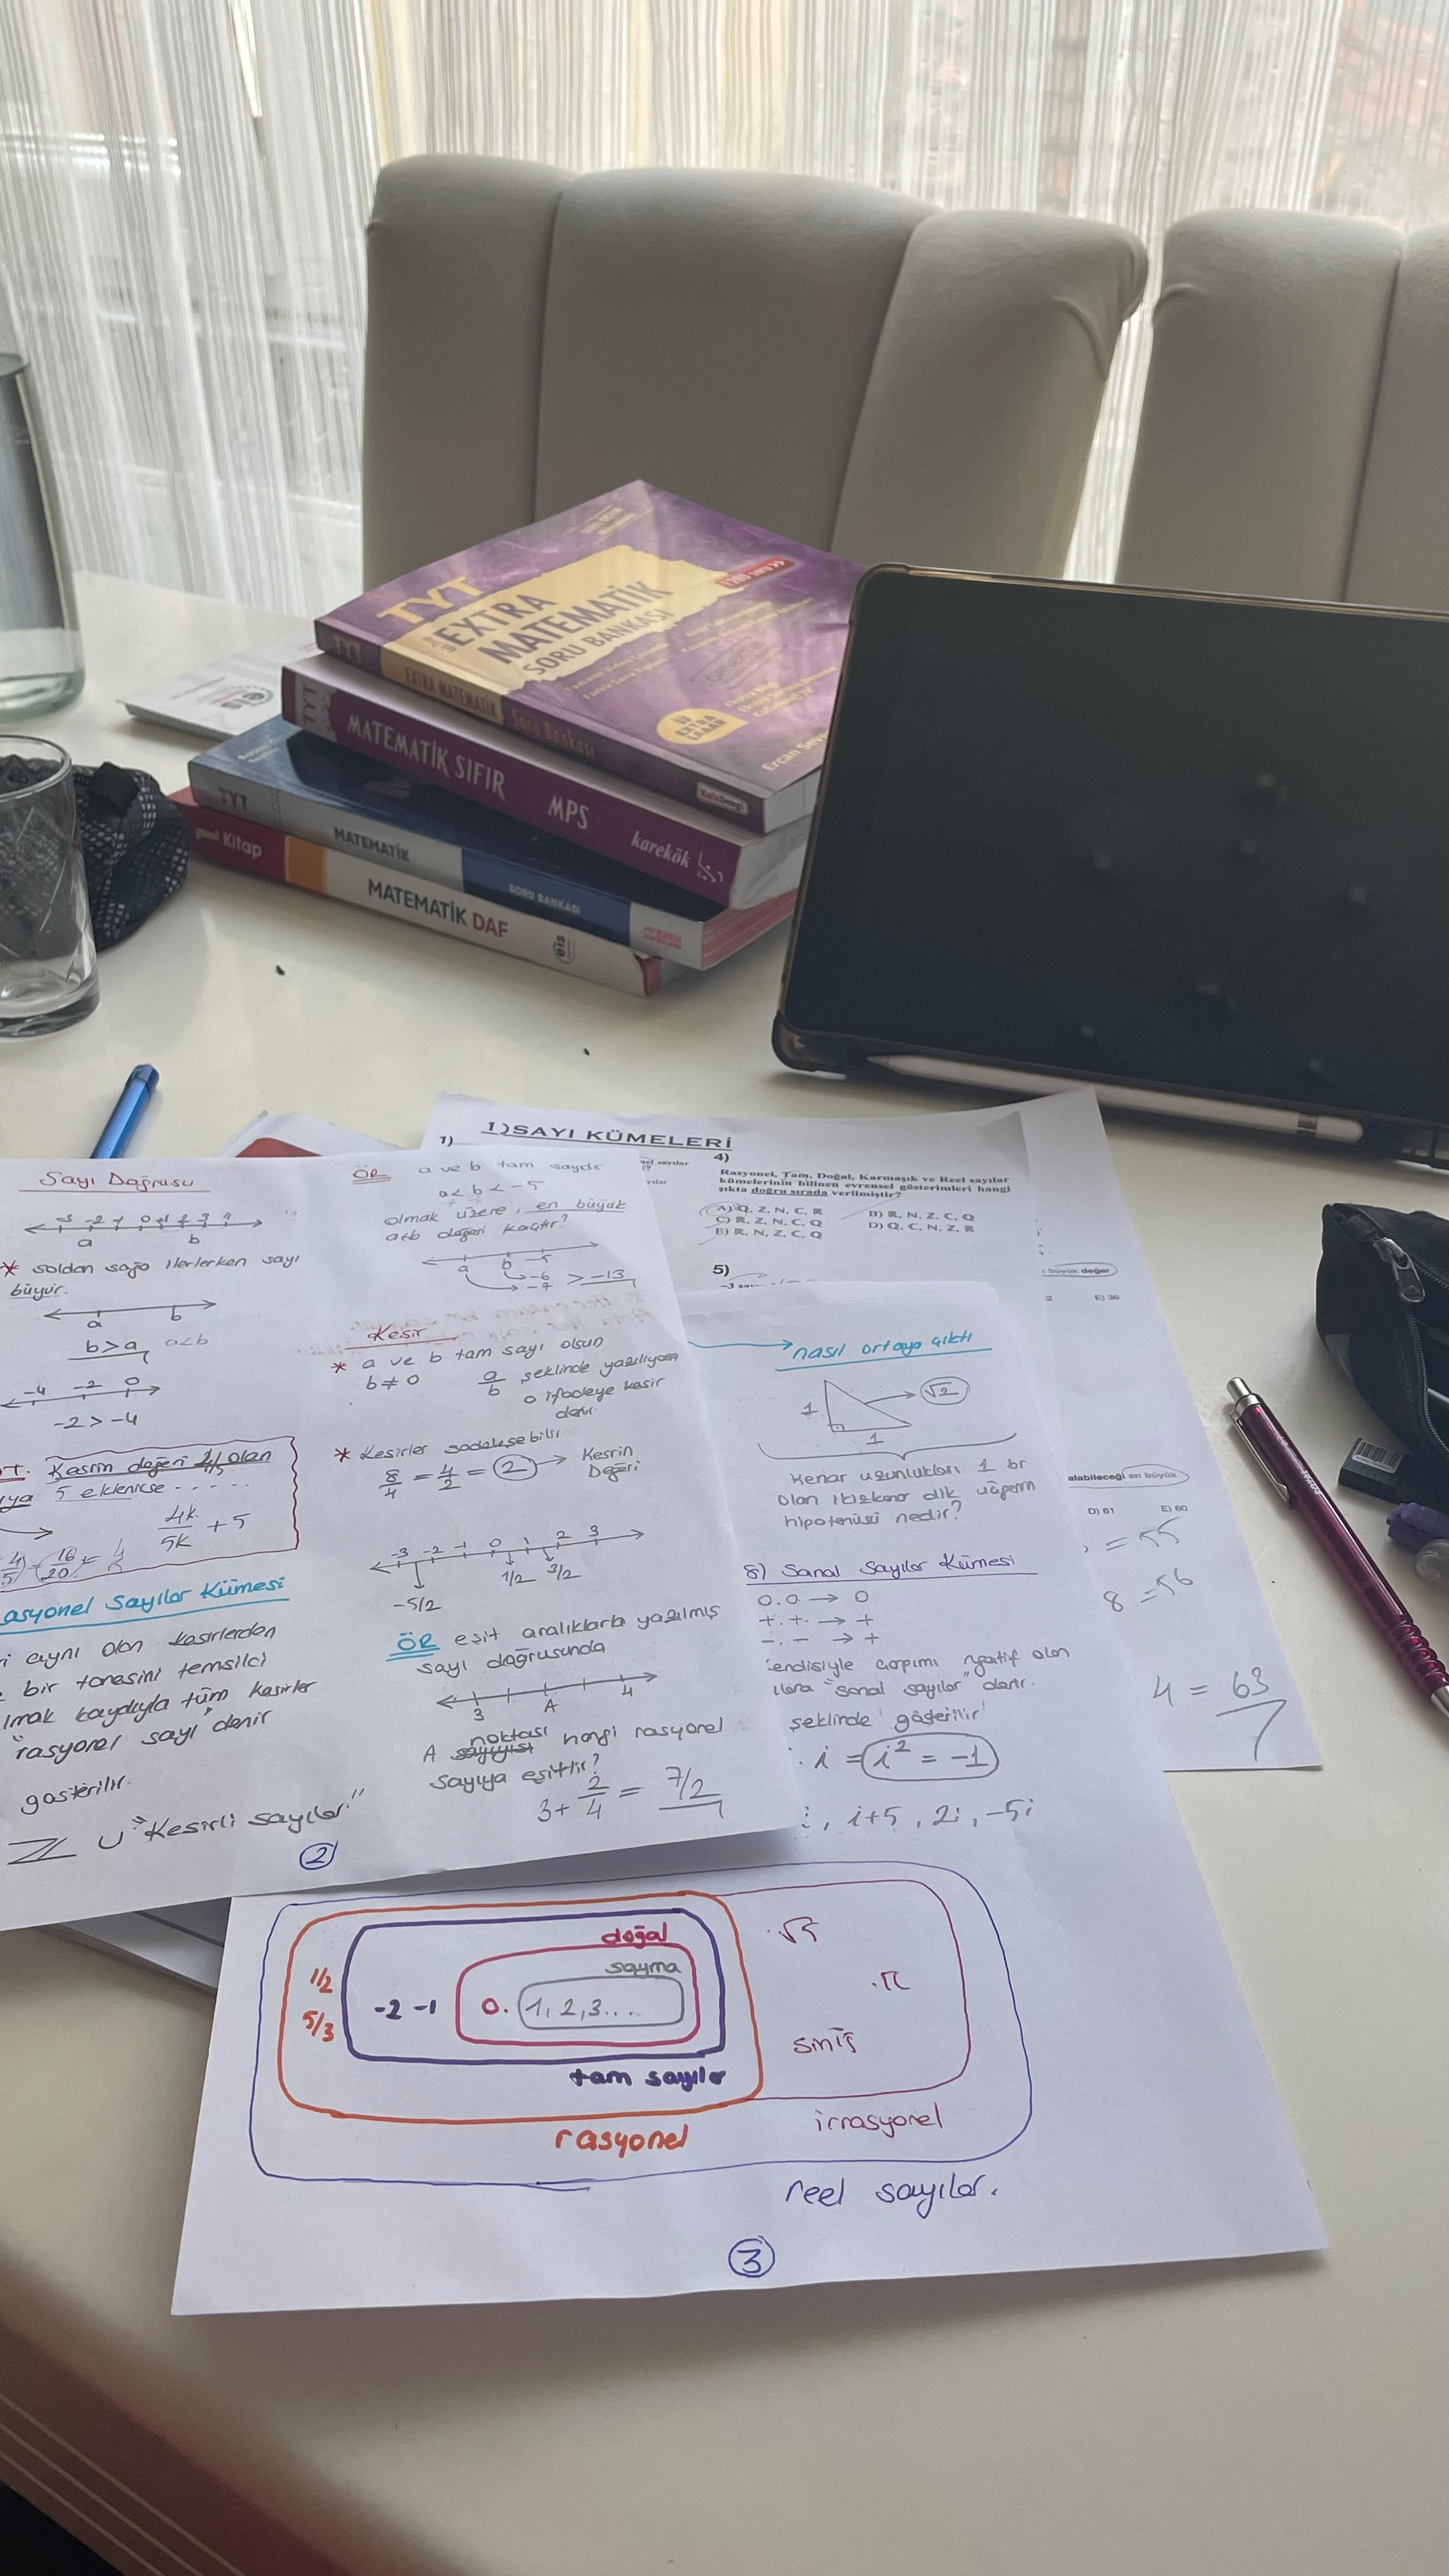 TYT
EXTRA
MATEMATİK
SORU BANKASI
1280 soru >>
Ercan
TYT
EXTRA MATEMATİK Soru Bankası
TYT
MATEMATİK SIFIR MPS karekök
TYT MATEMATİK SORU BANKASI
1 Kitap MATEMATİK DAF eis
eis
1) SAYI KÜMELERİ
1)
4)
Rasyonel, Tam, Doğal, Karmaşık ve Reel sayılar
kümelerinin bilinen evrensel gösterimleri hangi
şıkta doğru sırada verilmiştir?
A) Q, Z, N, C, R B) R, N, Z, C, Q
C) R, Z, N, C, Q D) Q, C, N, Z, R
E) R, N, Z, C, Q
5)
büyük değer
E) 36
alabileceği en büyük
D) 61 E) 60
= 55
8 = 56
4 = 63
Sayı Doğrusu
-3 -2 -1 0 +1 2 3 4
a b
* soldan sağa ilerlerken sayı
büyür.
a b
b>a a<b
-4 -2 0
-2 > -4
Kesrin değeri olan
5 eklenirse .....
4k/5k + 5
16/20
asyonel Sayılar Kümesi
aynı olan kesirlerden
bir tanesini temsilci
lmak kaydıyla tüm kesirler
"rasyonel sayı" denir
gösterilir.
Z ∪ "Kesirli sayılar"
2
ÖR a ve b tam sayıdır
a < b < -5
olmak üzere, en büyük
a+b değeri kaçtır?
a b -5
-6
-7 > -13
Kesir
* a ve b tam sayı olsun
b ≠ 0 a/b şeklinde yazılıyorsa
o ifadeye kesir
denir.
* Kesirler sadeleşebilir
8/4 = 4/2 = 2 → Kesrin
Değeri
-3 -2 -1 0 1 2 3
-5/2 1/2 3/2
ÖR eşit aralıklarla yazılmış
sayı doğrusunda
3 A 4
A noktası hangi rasyonel
sayıya eşittir?
3 + 2/4 = 7/2
nasıl ortaya çıktı
1 √2
1
Kenar uzunlukları 1 br
olan ikizkenar dik üçgenin
hipotenüsü nedir?
8) Sanal Sayılar Kümesi
0.0 → 0
+.+ → +
-.- → +
endisiyle çarpımı negatif olan
"sanal sayılar" denir.
şeklinde gösterilir
i = i² = -1
i, i+5, 2i, -5i
doğal
sayma
1/2
5/3
-2 -1 0. 1, 2, 3...
tam sayılar
rasyonel
.π
irrasyonel
reel sayılar.
3